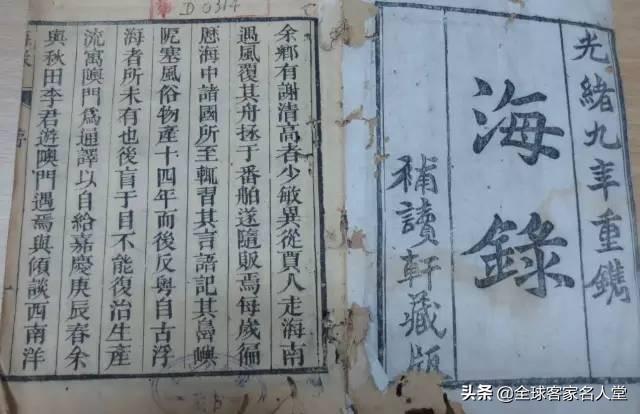 光緒九年重鐫
海錄
補讀軒藏版
D 0314
余鄉有謝清高者少敏異從賈人走海南
遇風覆其舟拯于番舶遂隨販焉每歲徧
歷海中諸國所至輒習其言語記其島嶼
阨塞風俗物產十四年而後反粵自古浮
海者所未有也後盲于目不能復治生產
流寓隩門爲通譯以自給嘉慶庚辰春余
與秋田李君遊隩門遇焉與傾談西南洋
序
头条 @全球客家名人堂